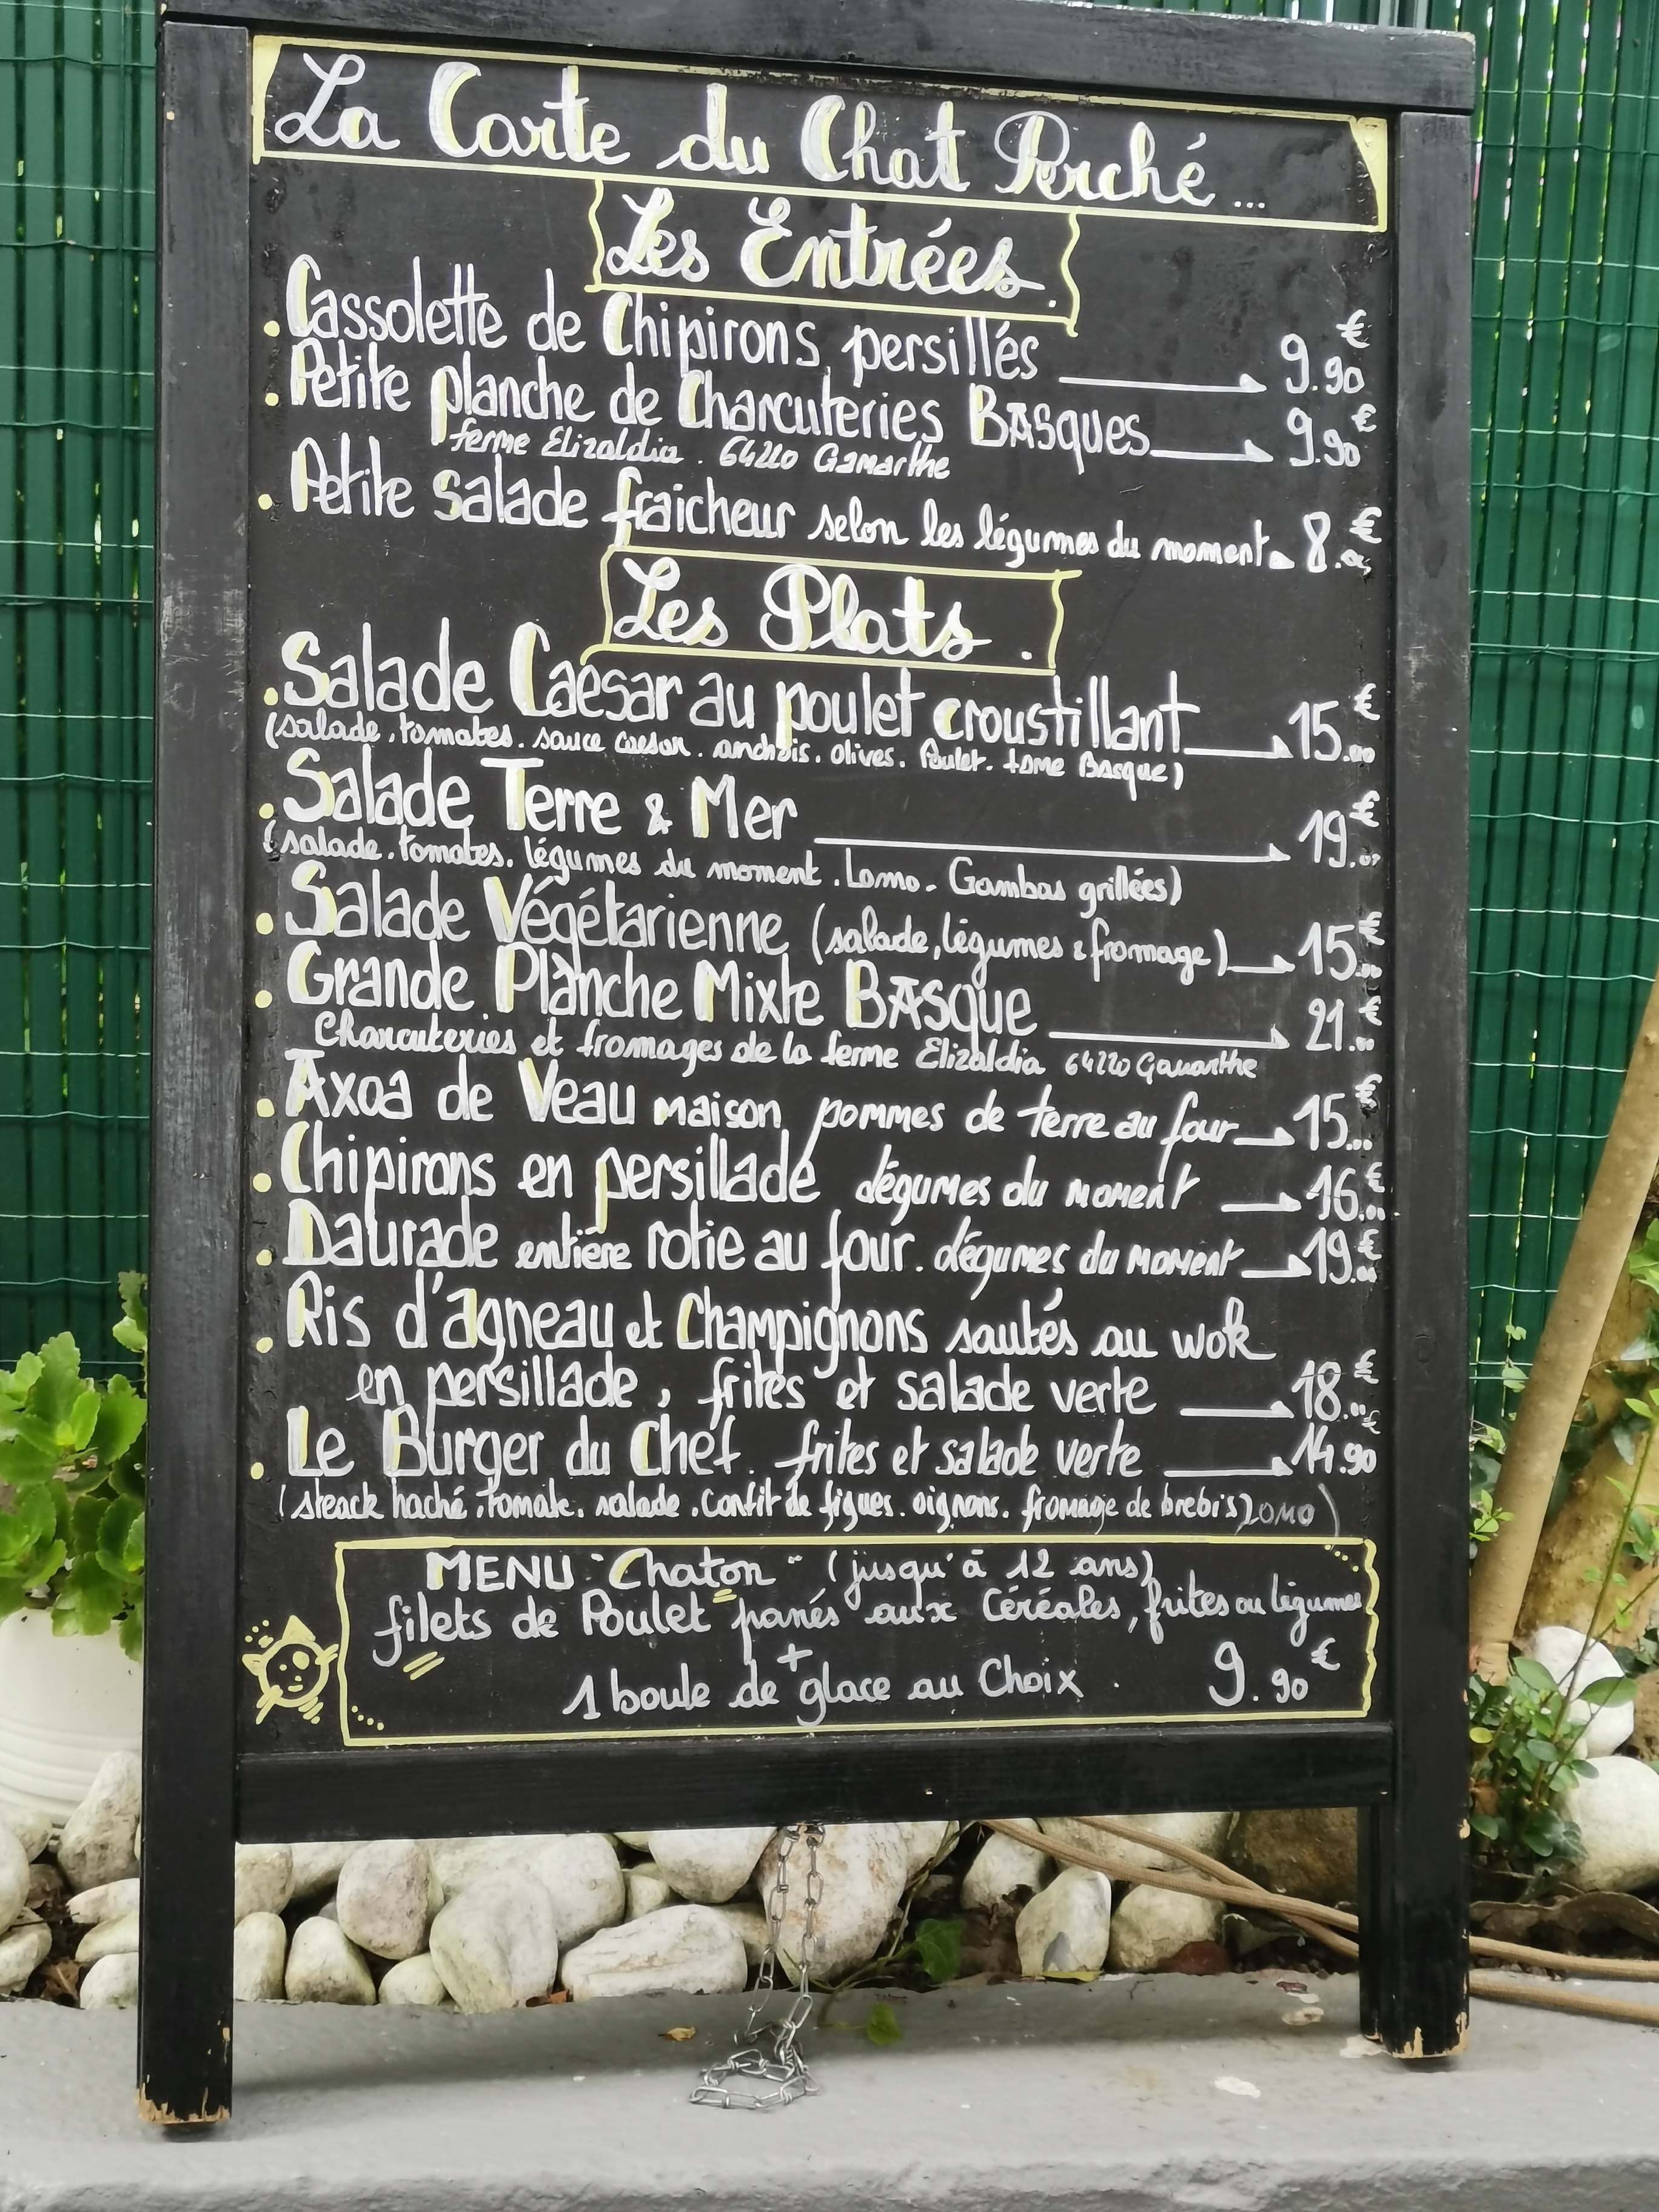 La Carte du Chat Perché...
Les Entrées.
. Cassolette de Chipirons persillés 9.90€
. Petite planche de Charcuteries BASques 9.90€
ferme Elizaldia. 64220 Gamarthe
. Petite salade fraicheur selon les légumes du moment 8.00€
Les Plats.
. Salade Caesar au poulet croustillant 15.00€
(salade. tomates. sauce caesar. anchois. olives. Poulet. tome Basque)
. Salade Terre & Mer 19.00€
(salade. tomates. légumes du moment. Lomo. Gambas grillées)
. Salade Végétarienne (salade, légumes & fromage) 15.00€
. Grande Planche Mixte BASque 21.00€
Charcuteries et fromages de la ferme Elizaldia 64220 Gamarthe
. Axoa de Veau maison, pommes de terre au four 15.00€
. Chipirons en persillade légumes du moment 16.00€
. Daurade entière rotie au four. légumes du moment 19.00€
. Ris d'agneau et Champignons sautés au wok
en persillade, frites et salade verte 18.00€
. Le Burger du Chef. frites et salade verte 14.90€
(steack haché. tomate. salade. confit de figues. oignons. fromage de brebis) LOMO)
MENU "Chaton" (jusqu'à 12 ans)
filets de Poulet panés aux Céréales, frites ou légumes
+
1 boule de glace au Choix. 9.90€